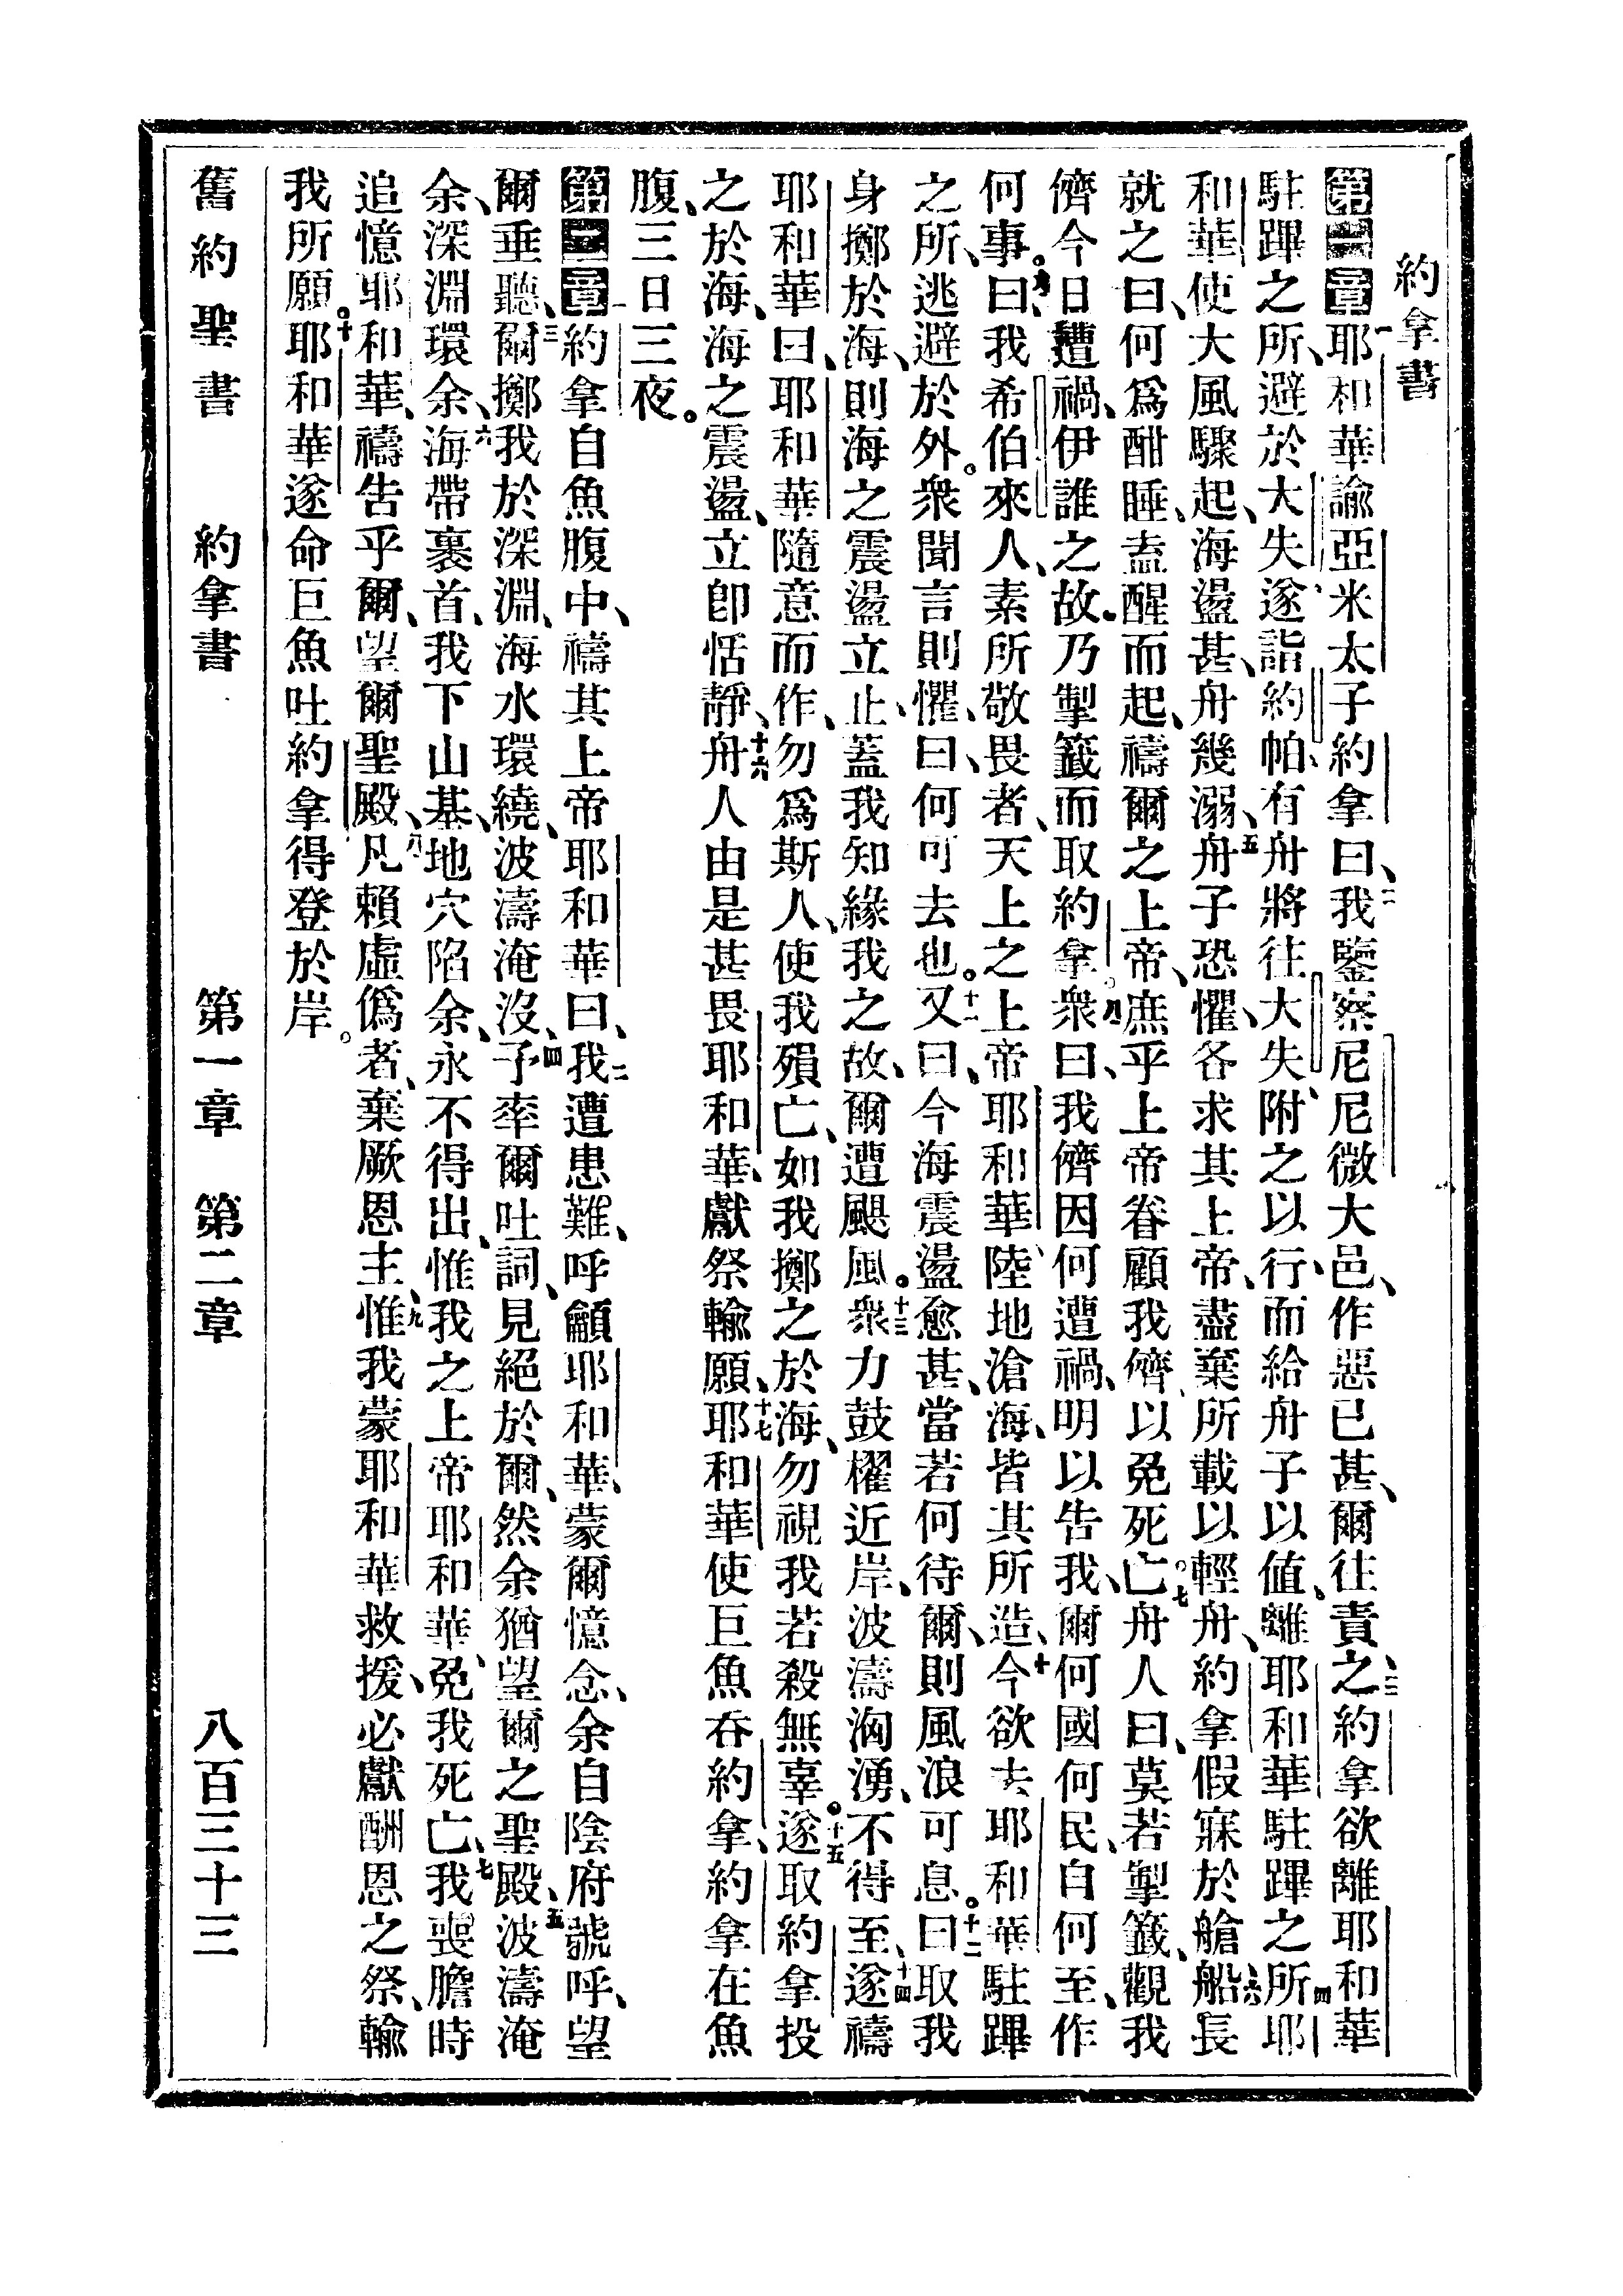 約拿書
第一章一耶和華諭亞米太子約拿曰、二我鑒察尼尼微大邑、作惡已甚、爾往責之、三約拿欲離耶和華
駐蹕之所、避於大失、遂詣約帕、有舟將往大失、附之以行、而給舟子以値、離耶和華駐蹕之所、四耶
和華使大風驟起、海盪甚、舟幾溺、五舟子恐懼、各求其上帝、盡棄所載以輕舟、約拿假寐於艙、六船長
就之曰、何爲酣睡、盍醒而起、禱爾之上帝、庶乎上帝眷顧我儕、以免死亡。七舟人曰、莫若掣籤、觀我
儕今日遭禍、伊誰之故。乃掣籤而取約拿。八衆曰、我儕因何遭禍、明以告我、爾何國何民、自何至、作
何事。九曰、我希伯來人、素所敬畏者、天上之上帝耶和華、陸地滄海、皆其所造、十今欲去耶和華駐蹕
之所、逃避於外。衆聞言則懼、曰、何可去也。十一又曰、今海震盪愈甚、當若何待爾、則風浪可息。十二曰、取我
身擲於海、則海之震盪立止、蓋我知緣我之故、爾遭颶風。十三衆力鼓櫂近岸、波濤洶湧、不得至、十四遂禱
耶和華曰、耶和華隨意而作、勿爲斯人、使我殞亡、如我擲之於海、勿視我若殺無辜。十五遂取約拿投
之於海、海之震盪、立卽恬靜、十六舟人由是甚畏耶和華、獻祭輸願、十七耶和華使巨魚吞約拿、約拿在魚
腹、三日三夜。
第二章一約拿自魚腹中、禱其上帝耶和華曰、二我遭患難、呼籲耶和華、蒙爾憶念、余自陰府號呼、望
爾垂聽、三爾擲我於深淵、海水環繞、波濤淹沒、四予率爾吐詞、見絕於爾、然余猶望爾之聖殿、五波濤淹
余、深淵環余、六海帶裹首、我下山基、地穴陷余、永不得出、惟我之上帝耶和華、免我死亡、七我喪膽時
追憶耶和華、禱告乎爾、望爾聖殿、八凡賴虛僞者、棄厥恩主、九惟我蒙耶和華救援、必獻酬恩之祭、輸
我所願。十耶和華遂命巨魚吐約拿得登於岸。
舊約聖書 約拿書 第一章 第二章 八百三十三